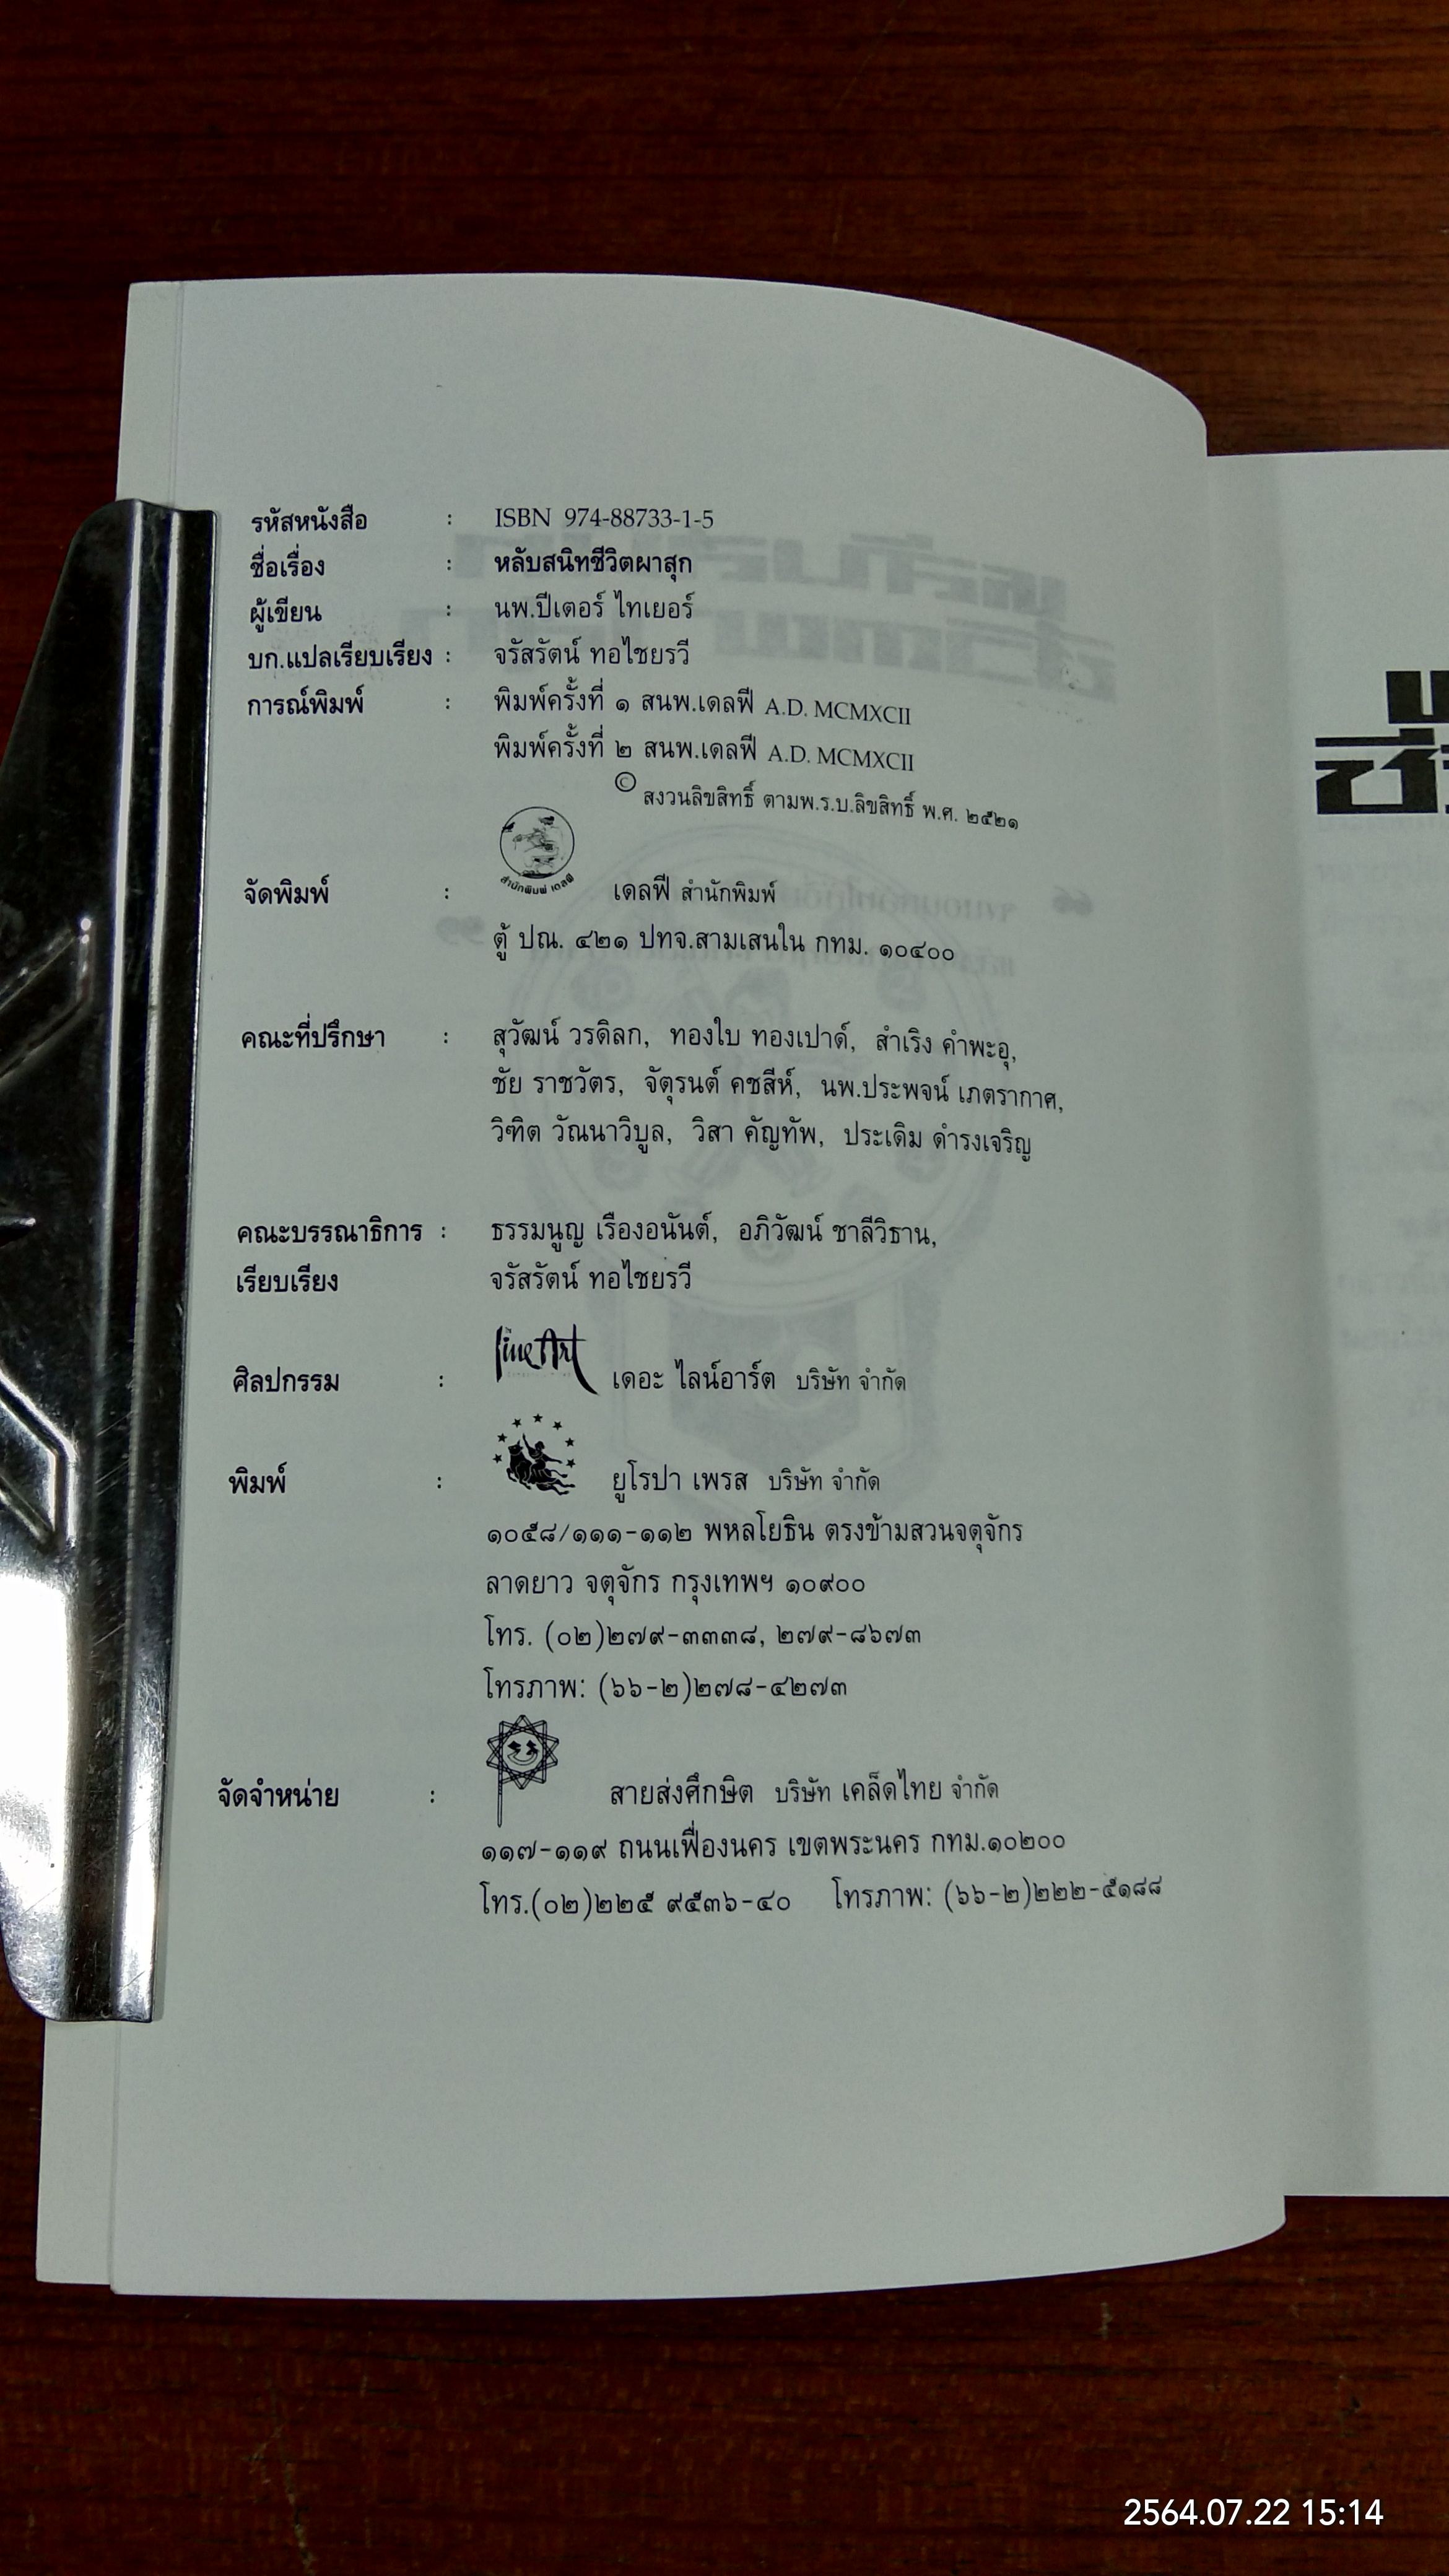 รหัสหนังสือ : ISBN 974-88733-1-5
ชื่อเรื่อง : หลับสนิทชีวิตผาสุก
ผู้เขียน : นพ.ปีเตอร์ ไทเยอร์
บก.แปลเรียบเรียง : จรัสรัตน์ ทอไชยรวี
การณ์พิมพ์ : พิมพ์ครั้งที่ ๑ สนพ.เดลฟี A.D. MCMXCII
พิมพ์ครั้งที่ ๒ สนพ.เดลฟี A.D. MCMXCII
© สงวนลิขสิทธิ์ ตามพ.ร.บ.ลิขสิทธิ์ พ.ศ. ๒๕๒๑
สำนักพิมพ์ เดลฟี
จัดพิมพ์ : เดลฟี สำนักพิมพ์
ตู้ ปณ. ๔๒๑ ปทจ.สามเสนใน กทม. ๑๐๔๐๐
คณะที่ปรึกษา : สุวัฒน์ วรดิลก, ทองใบ ทองเปาด์, สำเริง คำพะอุ,
ชัย ราชวัตร, จัตุรนต์ คชสีห์, นพ.ประพจน์ เภตรากาศ,
วิฑิต วัณนาวิบูล, วิสา คัญทัพ, ประเดิม ดำรงเจริญ
คณะบรรณาธิการ : ธรรมนูญ เรืองอนันต์, อภิวัฒน์ ชาลีวิธาน,
เรียบเรียง จรัสรัตน์ ทอไชยรวี
line Art
ศิลปกรรม : เดอะ ไลน์อาร์ต บริษัท จำกัด
พิมพ์ : ยูโรปา เพรส บริษัท จำกัด
๑๐๕๘/๑๑๑-๑๑๒ พหลโยธิน ตรงข้ามสวนจตุจักร
ลาดยาว จตุจักร กรุงเทพฯ ๑๐๙๐๐
โทร. (๐๒)๒๗๙-๓๓๓๘, ๒๗๙-๘๖๗๓
โทรภาพ: (๖๖-๒)๒๗๘-๔๒๗๓
จัดจำหน่าย : สายส่งศึกษิต บริษัท เคล็ดไทย จำกัด
๑๑๗-๑๑๙ ถนนเฟื่องนคร เขตพระนคร กทม.๑๐๒๐๐
โทร.(๐๒)๒๒๕ ๙๕๓๖-๔๐ โทรภาพ: (๖๖-๒)๒๒๒-๕๑๘๘
2564.07.22 15:14